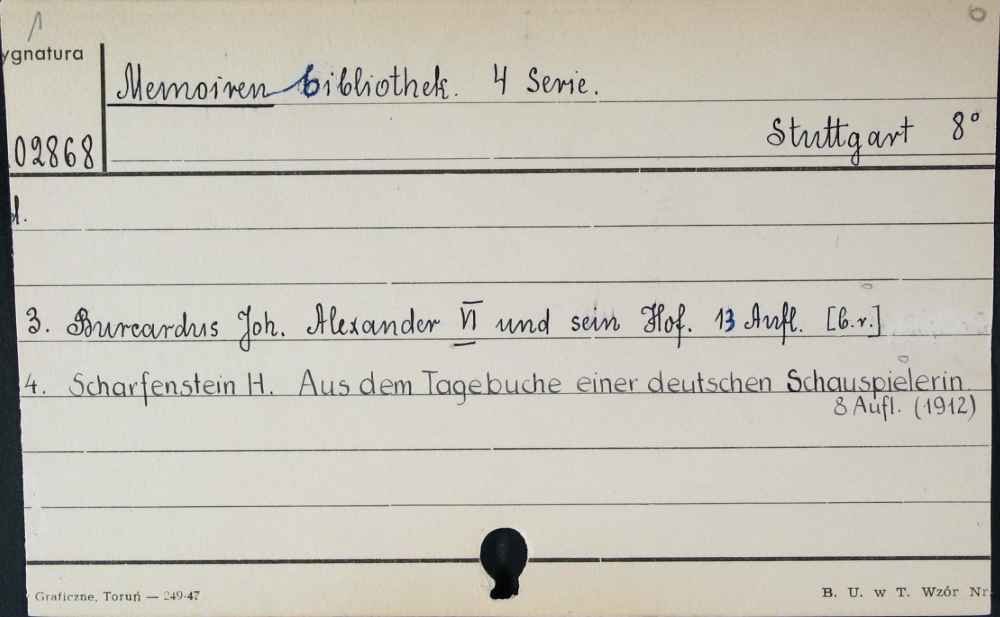 ygnatura
Memoirenbibliothek. 4 Serie.
02868
Stuttgart 8°
d.
3. Burcardus Joh. Alexander VI und sein Hof. 13 Aufl. [b.r.]
4. Scharfenstein H. Aus dem Tagebuche einer deutschen Schauspielerin
8 Aufl. (1912)
Graficzne, Toruń — 249-47
B. U. w T. Wzór Nr